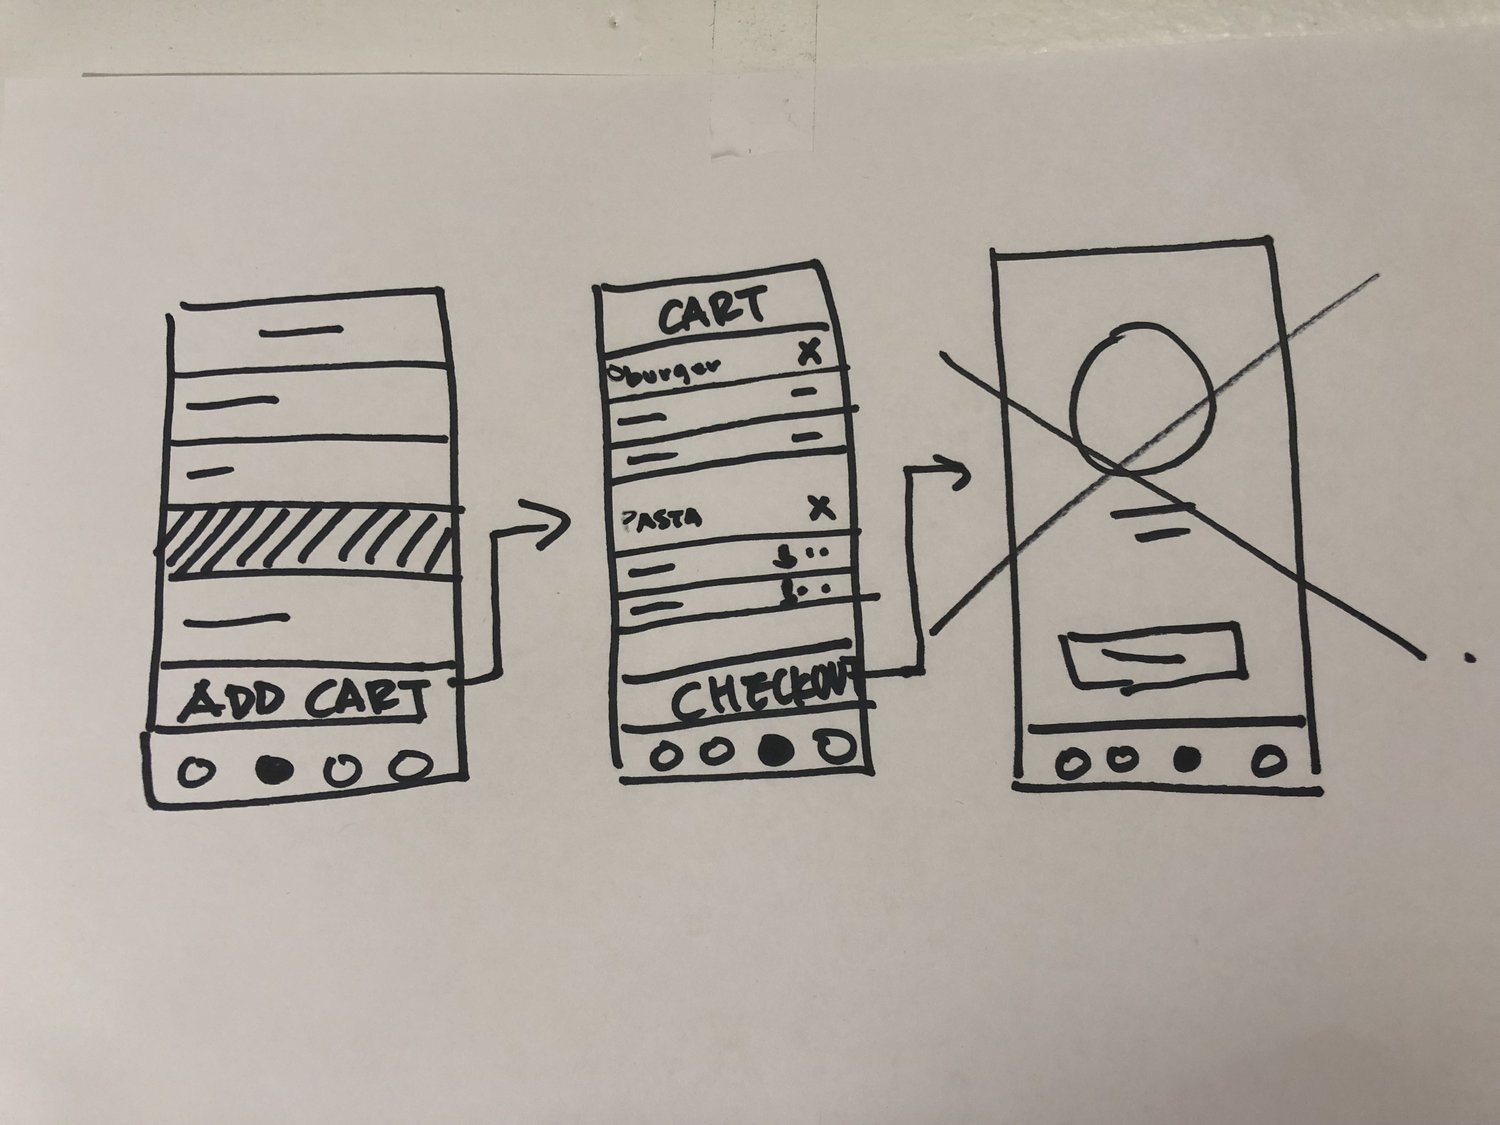 ADD CART
CART
burger X
PASTA X
CHECKOUT